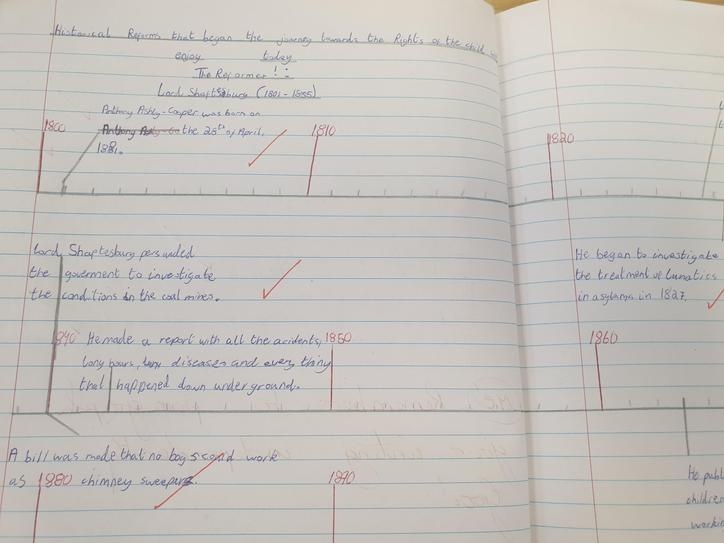 Historical Reforms that began the journey towards the Rights of the child we
enjoy today
The Reformer!:
Lord Shaftesbury (1801 - 1885)
Anthony Ashly-Cooper was born on
the 28th of April,
1881.
1800
1810
1820
Lord Shaptesbury persuaded
the goverment to investigate
the conditions in the coal mines.
He began to investigate
the treatment of lunatics
in asylums in 1827.
1840
1850
1860
He made a report with all the acidents,
long hours, diseases and every thing
that happened down underground.
A bill was made that no boy could work
as chimney sweepers.
1880
1890
He publ
children
workin